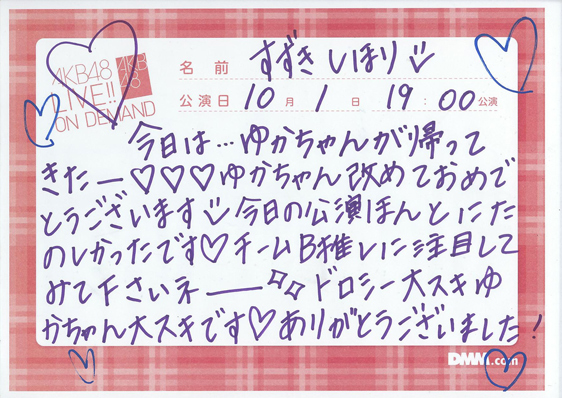 AKB48
LIVE!!
ON DEMAND
AKB
48
名前 すずきしほり
公演日 10月1日 19:00公演
今日は…ゆかちゃんが帰って
きたー♡♡♡ゆかちゃん改めておめで
とうございます 今日の公演ほんとにた
のしかったです♡チームB推しに注目して
みて下さいネー ドロシー大スキゆ
かちゃん大スキです♡ありがとうございました!
DMM.com